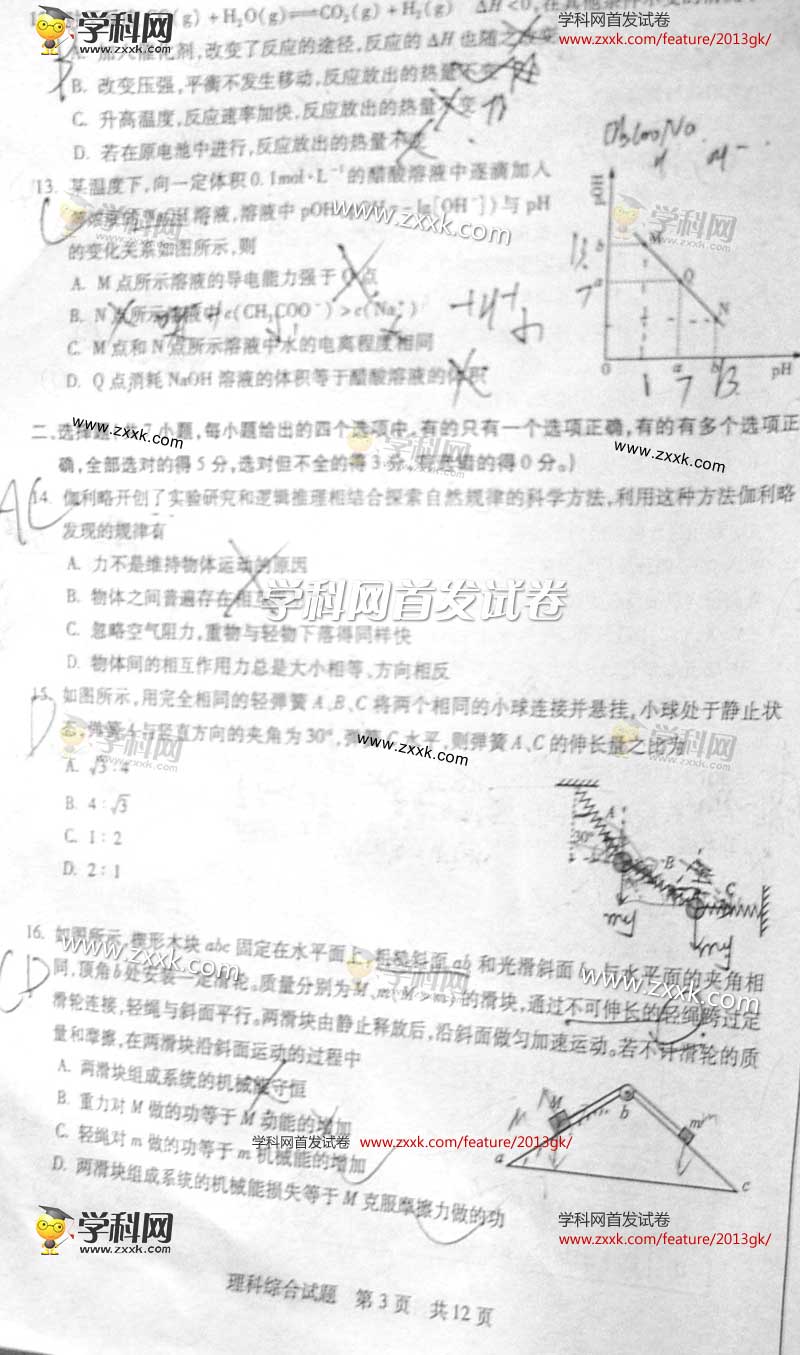 (g)+H₂O(g)⇌CO₂(g)+H₂(g) ΔH<0,在其他
www.zxxk.com/feature/2013gk/
A. 加入催化剂,改变了反应的途径,反应的ΔH也随之改变
B. 改变压强,平衡不发生移动,反应放出的热量不变
C. 升高温度,反应速率加快,反应放出的热量不变
D. 若在原电池中进行,反应放出的热量不变
13. 某温度下,向一定体积0.1mol·L⁻¹的醋酸溶液中逐滴加入
溶液,溶液中pOH lg[OH⁻])与pH
www.zxxk.com
学科网
www.zxxk.com
学科网
www.zxxk.com
的变化关系如图所示,则
A. M点所示溶液的导电能力强于Q点
B. N点所示溶液中c(CH₃COO⁻)>c(Na⁺)
C. M点和N点所示溶液中水的电离程度相同
D. Q点消耗NaOH溶液的体积等于醋酸溶液的体积
b
a
M
Q
N
0 a b pH
1 7 13
www.zxxk.com
二、选择题 7小题,每小题给出的四个选项中,有的只有一个选项正确,有的有多个选项正
www.zxxk.com
确,全部选对的得5分,选对但不全的得3分,有选错的得0分。)
AC
14. 伽利略开创了实验研究和逻辑推理相结合探索自然规律的科学方法,利用这种方法伽利略
发现的规律有
A. 力不是维持物体运动的原因
B. 物体之间普遍存在相互
学科网首发试卷
C. 忽略空气阻力,重物与轻物下落得同样快
D. 物体间的相互作用力总是大小相等、方向相反
D
15. 如图所示,用完全相同的轻弹簧A、B、C将两个相同的小球连接并悬挂,小球处于静止状
态,弹簧A与竖直方向的夹角为30°,弹簧C水平,则弹簧A、C的伸长量之比为
学科网
www.zxxk.com
www.zxxk.com
学科网
www.zxxk.com
A. √3:4
B. 4:√3
C. 1:2
D. 2:1
A
30°
B
C
mg
mg
CD
16. 如图所示,楔形木块abc固定在水平面上,粗糙斜面ab和光滑斜面bc与水平面的夹角相
同,顶角b处安装一定滑轮。质量分别为M、m(M>m)的滑块,通过不可伸长的轻绳跨过定
www.zxxk.com
www.zxxk.com
滑轮连接,轻绳与斜面平行。两滑块由静止释放后,沿斜面做匀加速运动。若不计滑轮的质
量和摩擦,在两滑块沿斜面运动的过程中
A. 两滑块组成系统的机械能守恒
B. 重力对M做的功等于M动能的增加
C. 轻绳对m做的功等于m机械能的增加
D. 两滑块组成系统的机械能损失等于M克服摩擦力做的功
M
b
m
a
c
学科网首发试卷 www.zxxk.com/feature/2013gk/
学科网
www.zxxk.com
学科网
www.zxxk.com
学科网首发试卷
www.zxxk.com/feature/2013gk/
理科综合试题 第3页 共12页